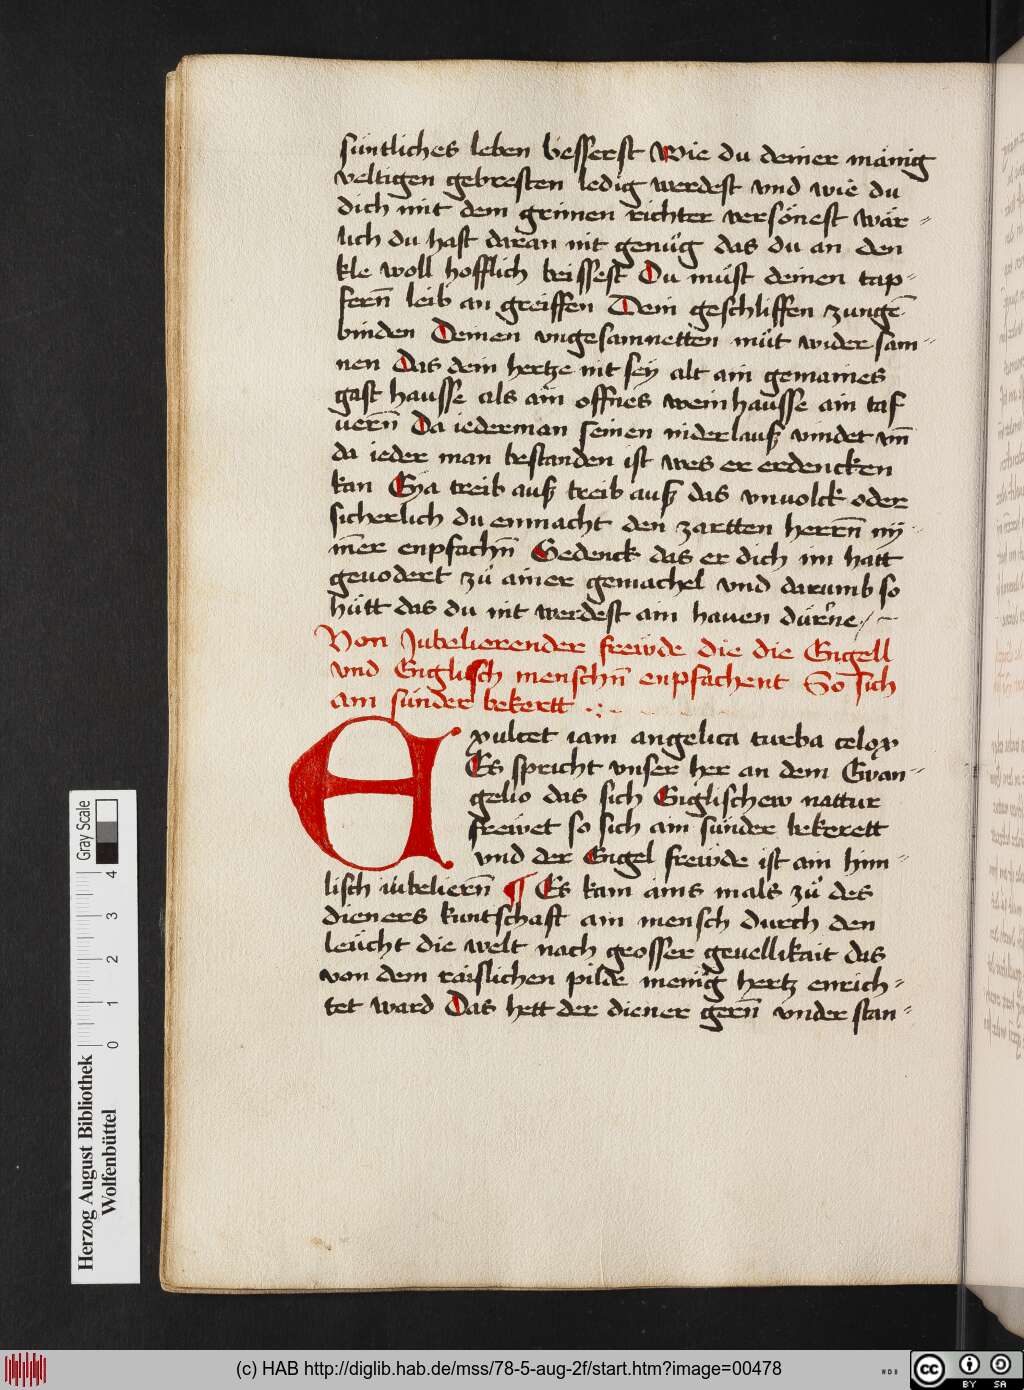 súntliches leben besserst Wie du deiner mänig
veltigen gebresten ledig werdest vnd wie du
dich mit dem grimen richter versönest wär=
lich du hast daran nit genu̇g das du an den
kle woll hofflich beissest Du must deinen tap=
fern̄ leib an greiffen Dein geschliffen zunge
binden Deinen vngesamnetten mu̇t wider sam=
nen Das dein hertze nit sey alt ain gemaines
gast hausse als ain offnes weinhausse ain taf
uern̄ Da iederman seinen niderlauß vindet vn̄
da ieder man bestanden ist wes er erdencken
kan Eya treib auß treib auß das vnuolck oder
sicherlich du enmacht den zartten herrn̄ ny=
m̄er enpfachn̄ Gedenck das er dich im hatt
geuodert zu̇ ainer gemachel vnd darumb so
hu̇tt das du nit werdest ain hauen dürne
Von Jubelierender freẅde die die Engell
vnd Englisch menschn̄ enpfachent So sich
ain súnder bekertt
Exultet iam angelica turba celox
Es spricht vnser her an dem Evan=
gelio das sich Englischew nattur
freẅet so sich ain súnder bekerett
vnd der Engel freẅde ist ain him=
lisch iu̇beliern̄ ¶ Es kam ains mals zu̇ des
dieners kuntschaft ain mensch durch den
leücht die welt nach grosser geuellikait das
von dem raislichen pilde menig hertz enrich=
tet ward Das hett der diener gern̄ vnder stan=
Herzog August Bibliothek
Wolfenbüttel
0 1 2 3 4
Gray Scale
(c) HAB http://diglib.hab.de/mss/78-5-aug-2f/start.htm?image=00478
cc BY SA